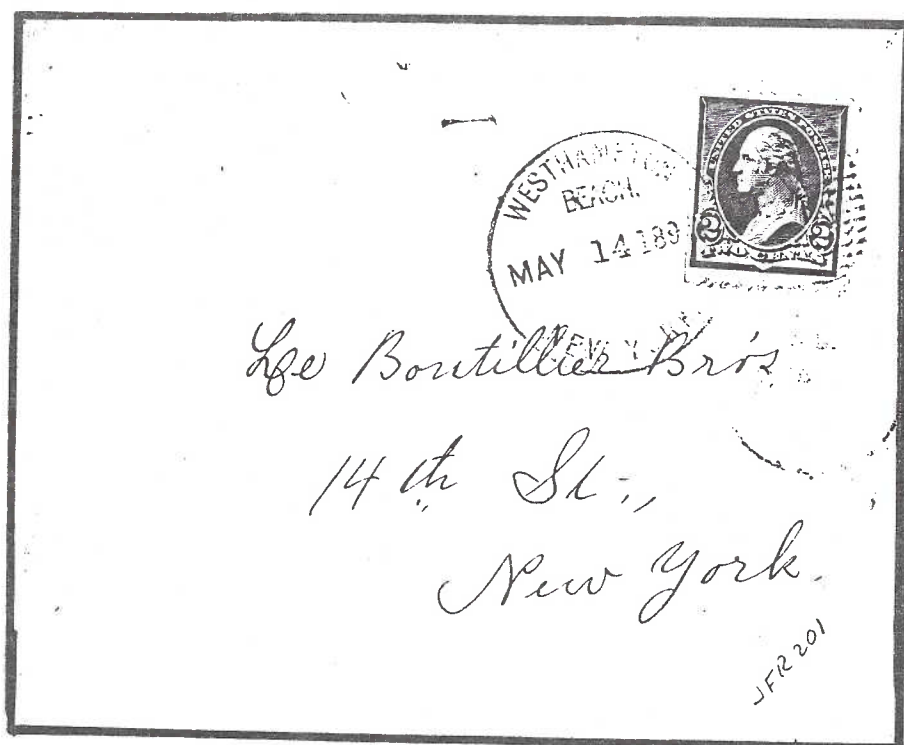 WESTHAMPTON
BEACH.
MAY 14 189
NEW Y
UNITED STATES POSTAGE
2 2
TWO CENTS
Le Boutillier Bro's
14th St.,
New York.
JFR 201